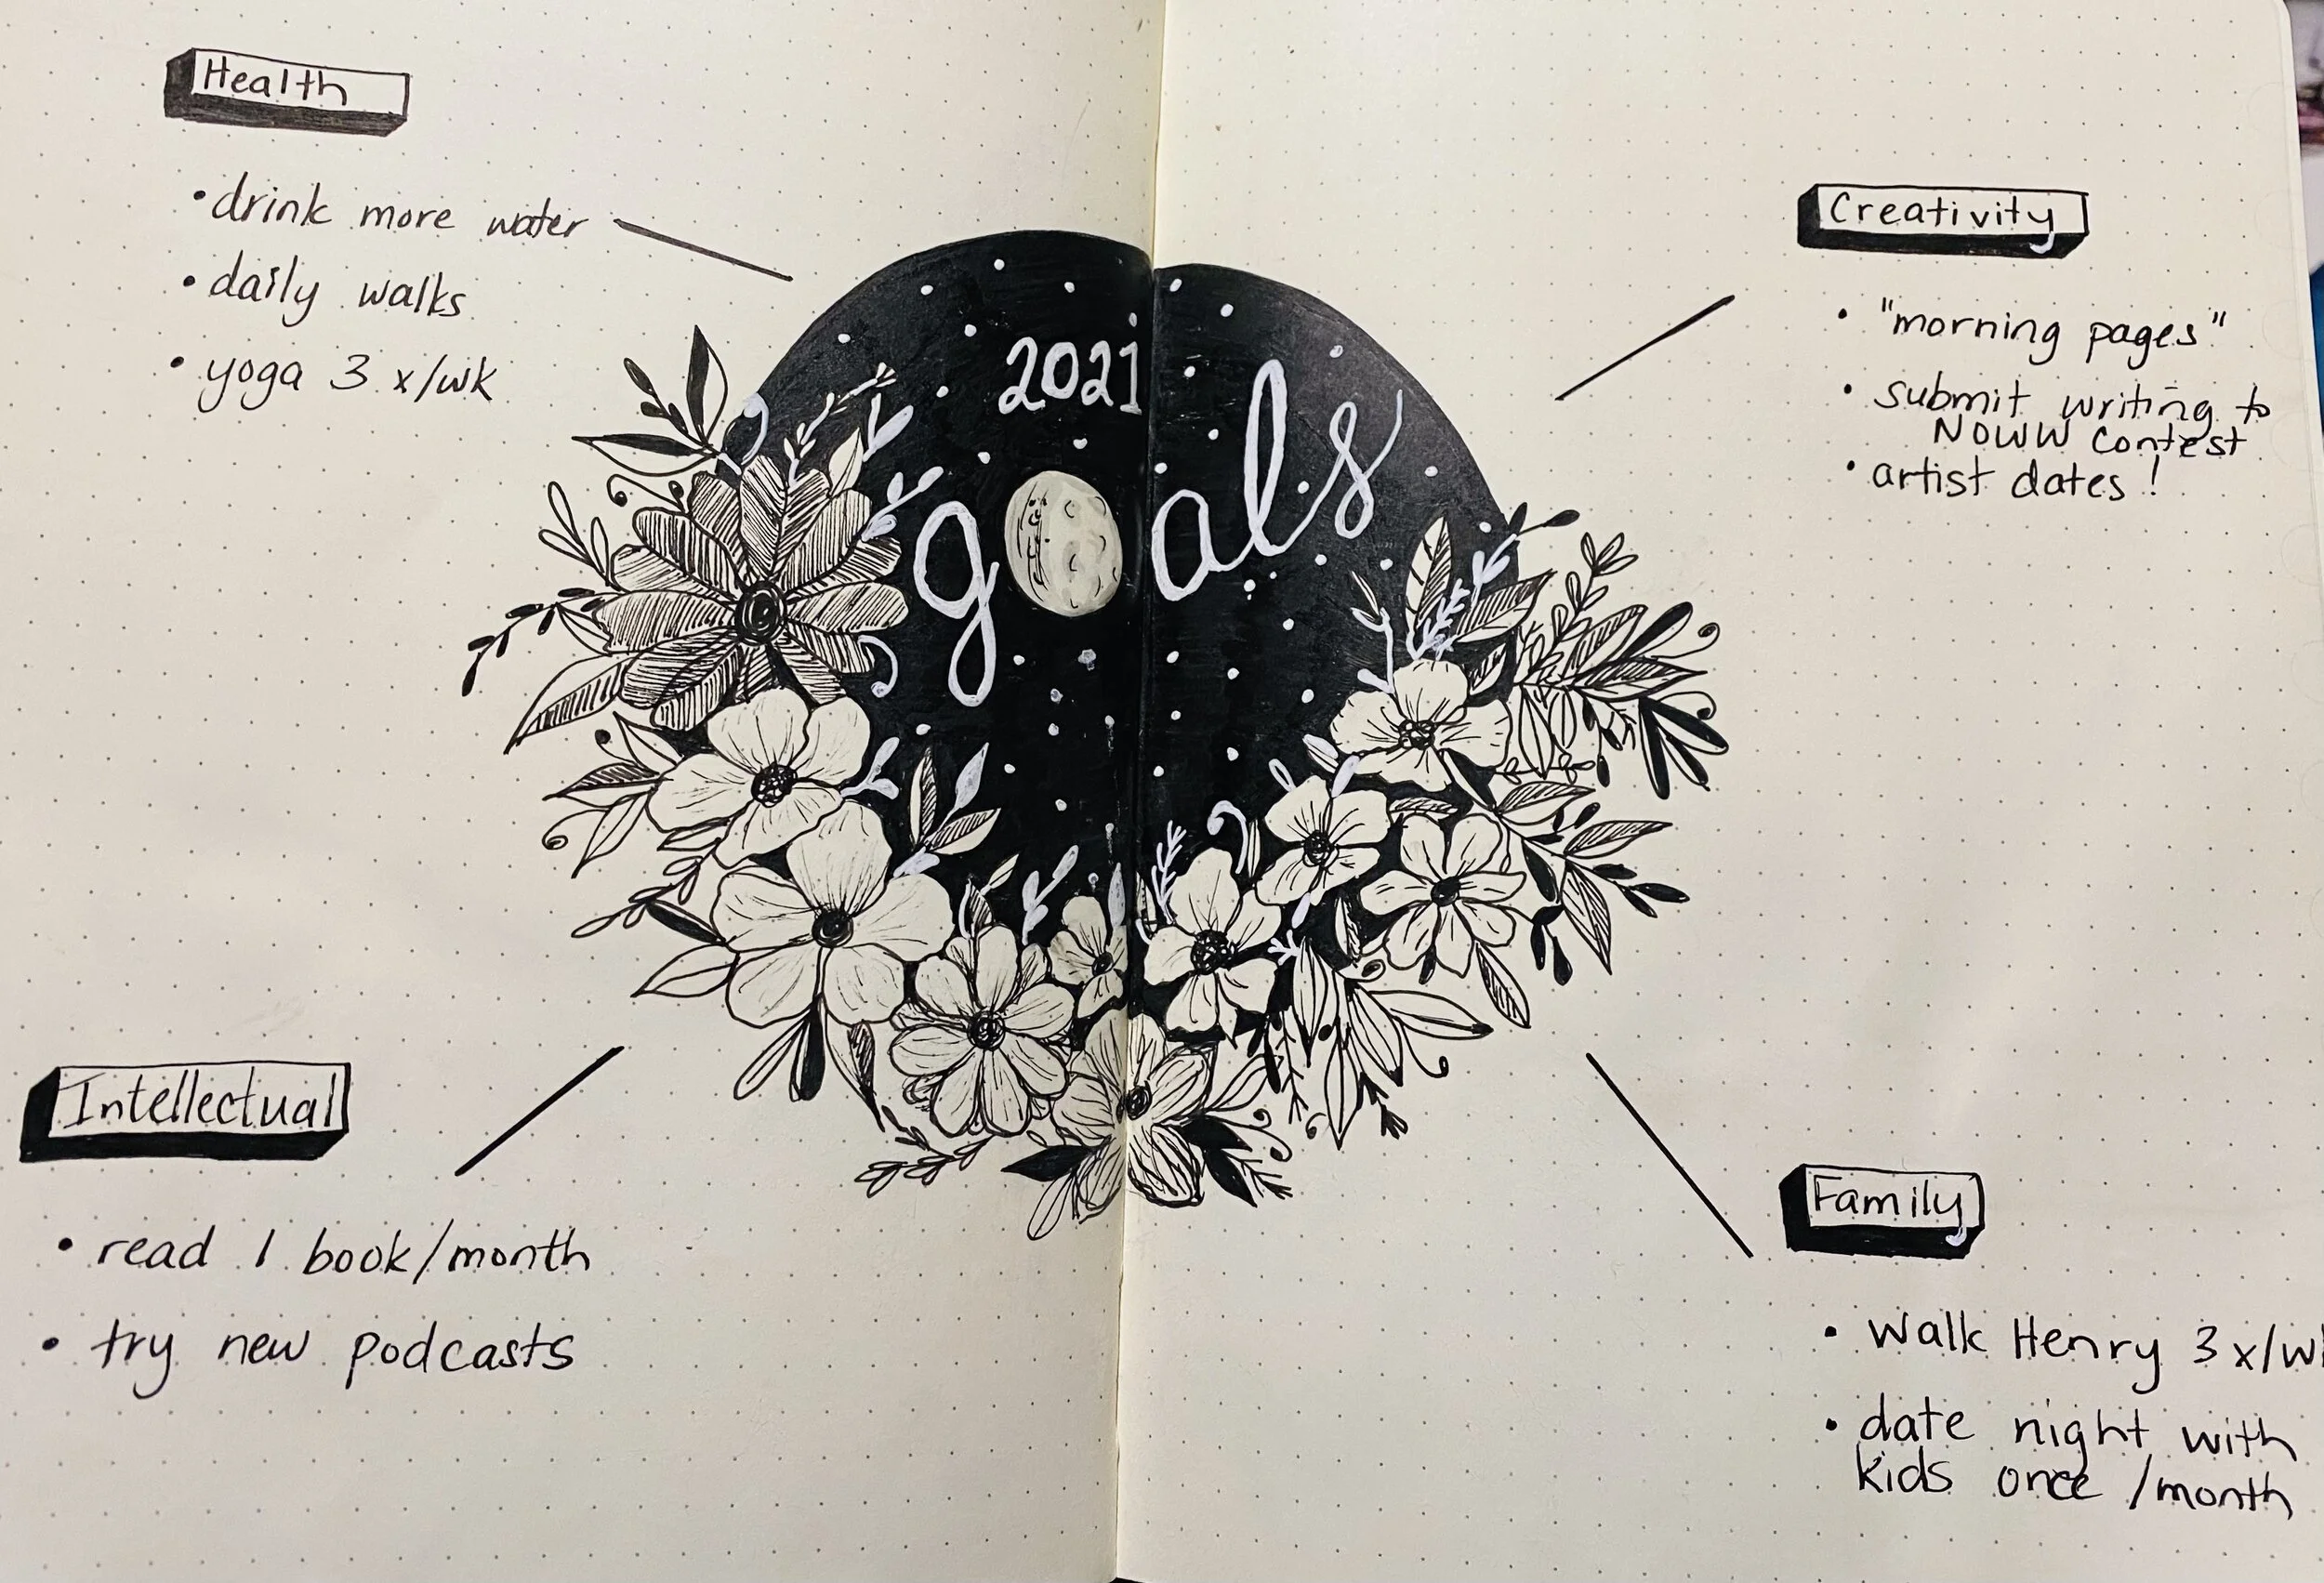 Health
• drink more water
• daily walks
• yoga 3 x/wk
2021
goals
Creativity
• "morning pages"
• submit writing to
NOWW Contest
• artist dates!
Intellectual
• read 1 book/month
• try new podcasts
Family
• Walk Henry 3x/w
• date night with
kids once /month